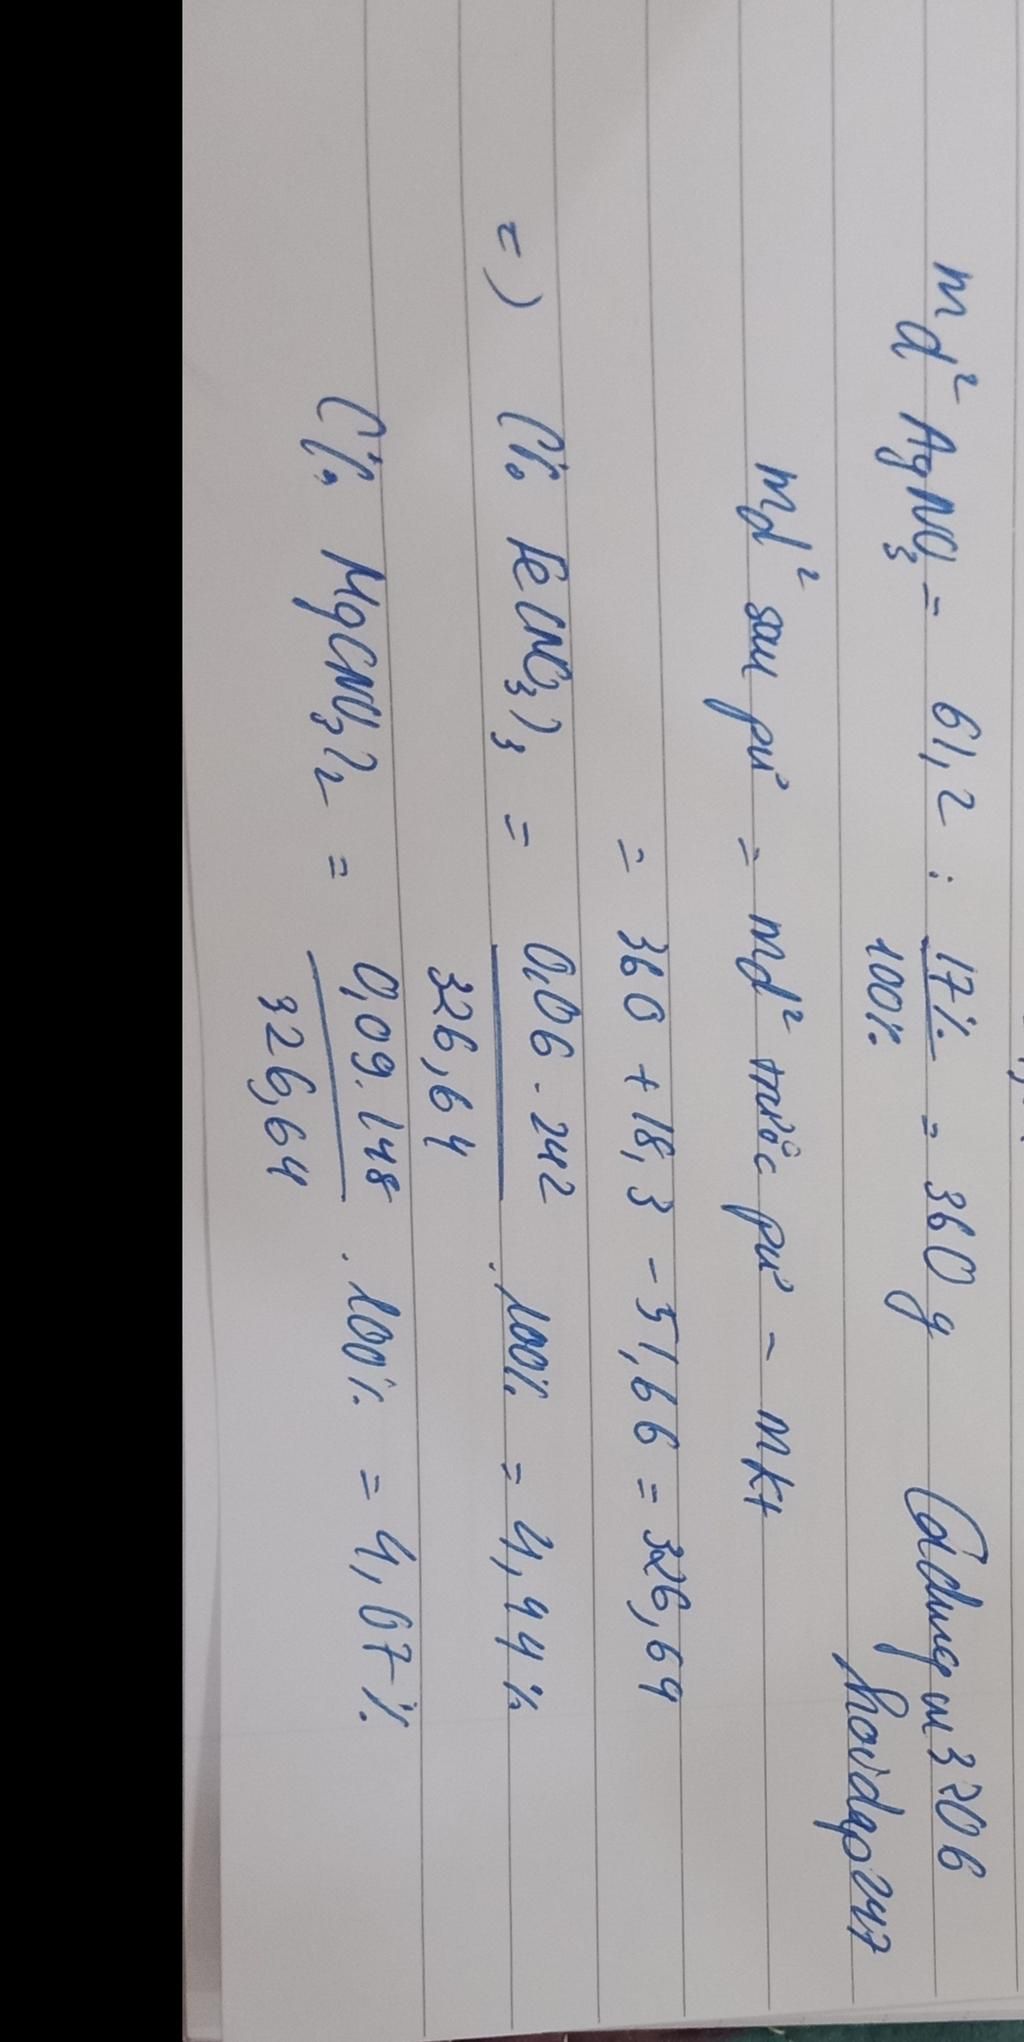 md² AgNO₃ = 61,2 : 17%/100% = 360 g Cadungm3206
hoidap247
md² sau pứ = md² trước pứ - mkt
= 360 + 18,3 - 51,66 = 326,64
=) C% Fe(NO₃)₃ = 0,06 . 242 / 326,64 . 100% = 4,44%
C% Mg(NO₃)₂ = 0,09 . 148 / 326,64 . 100% = 4,07%